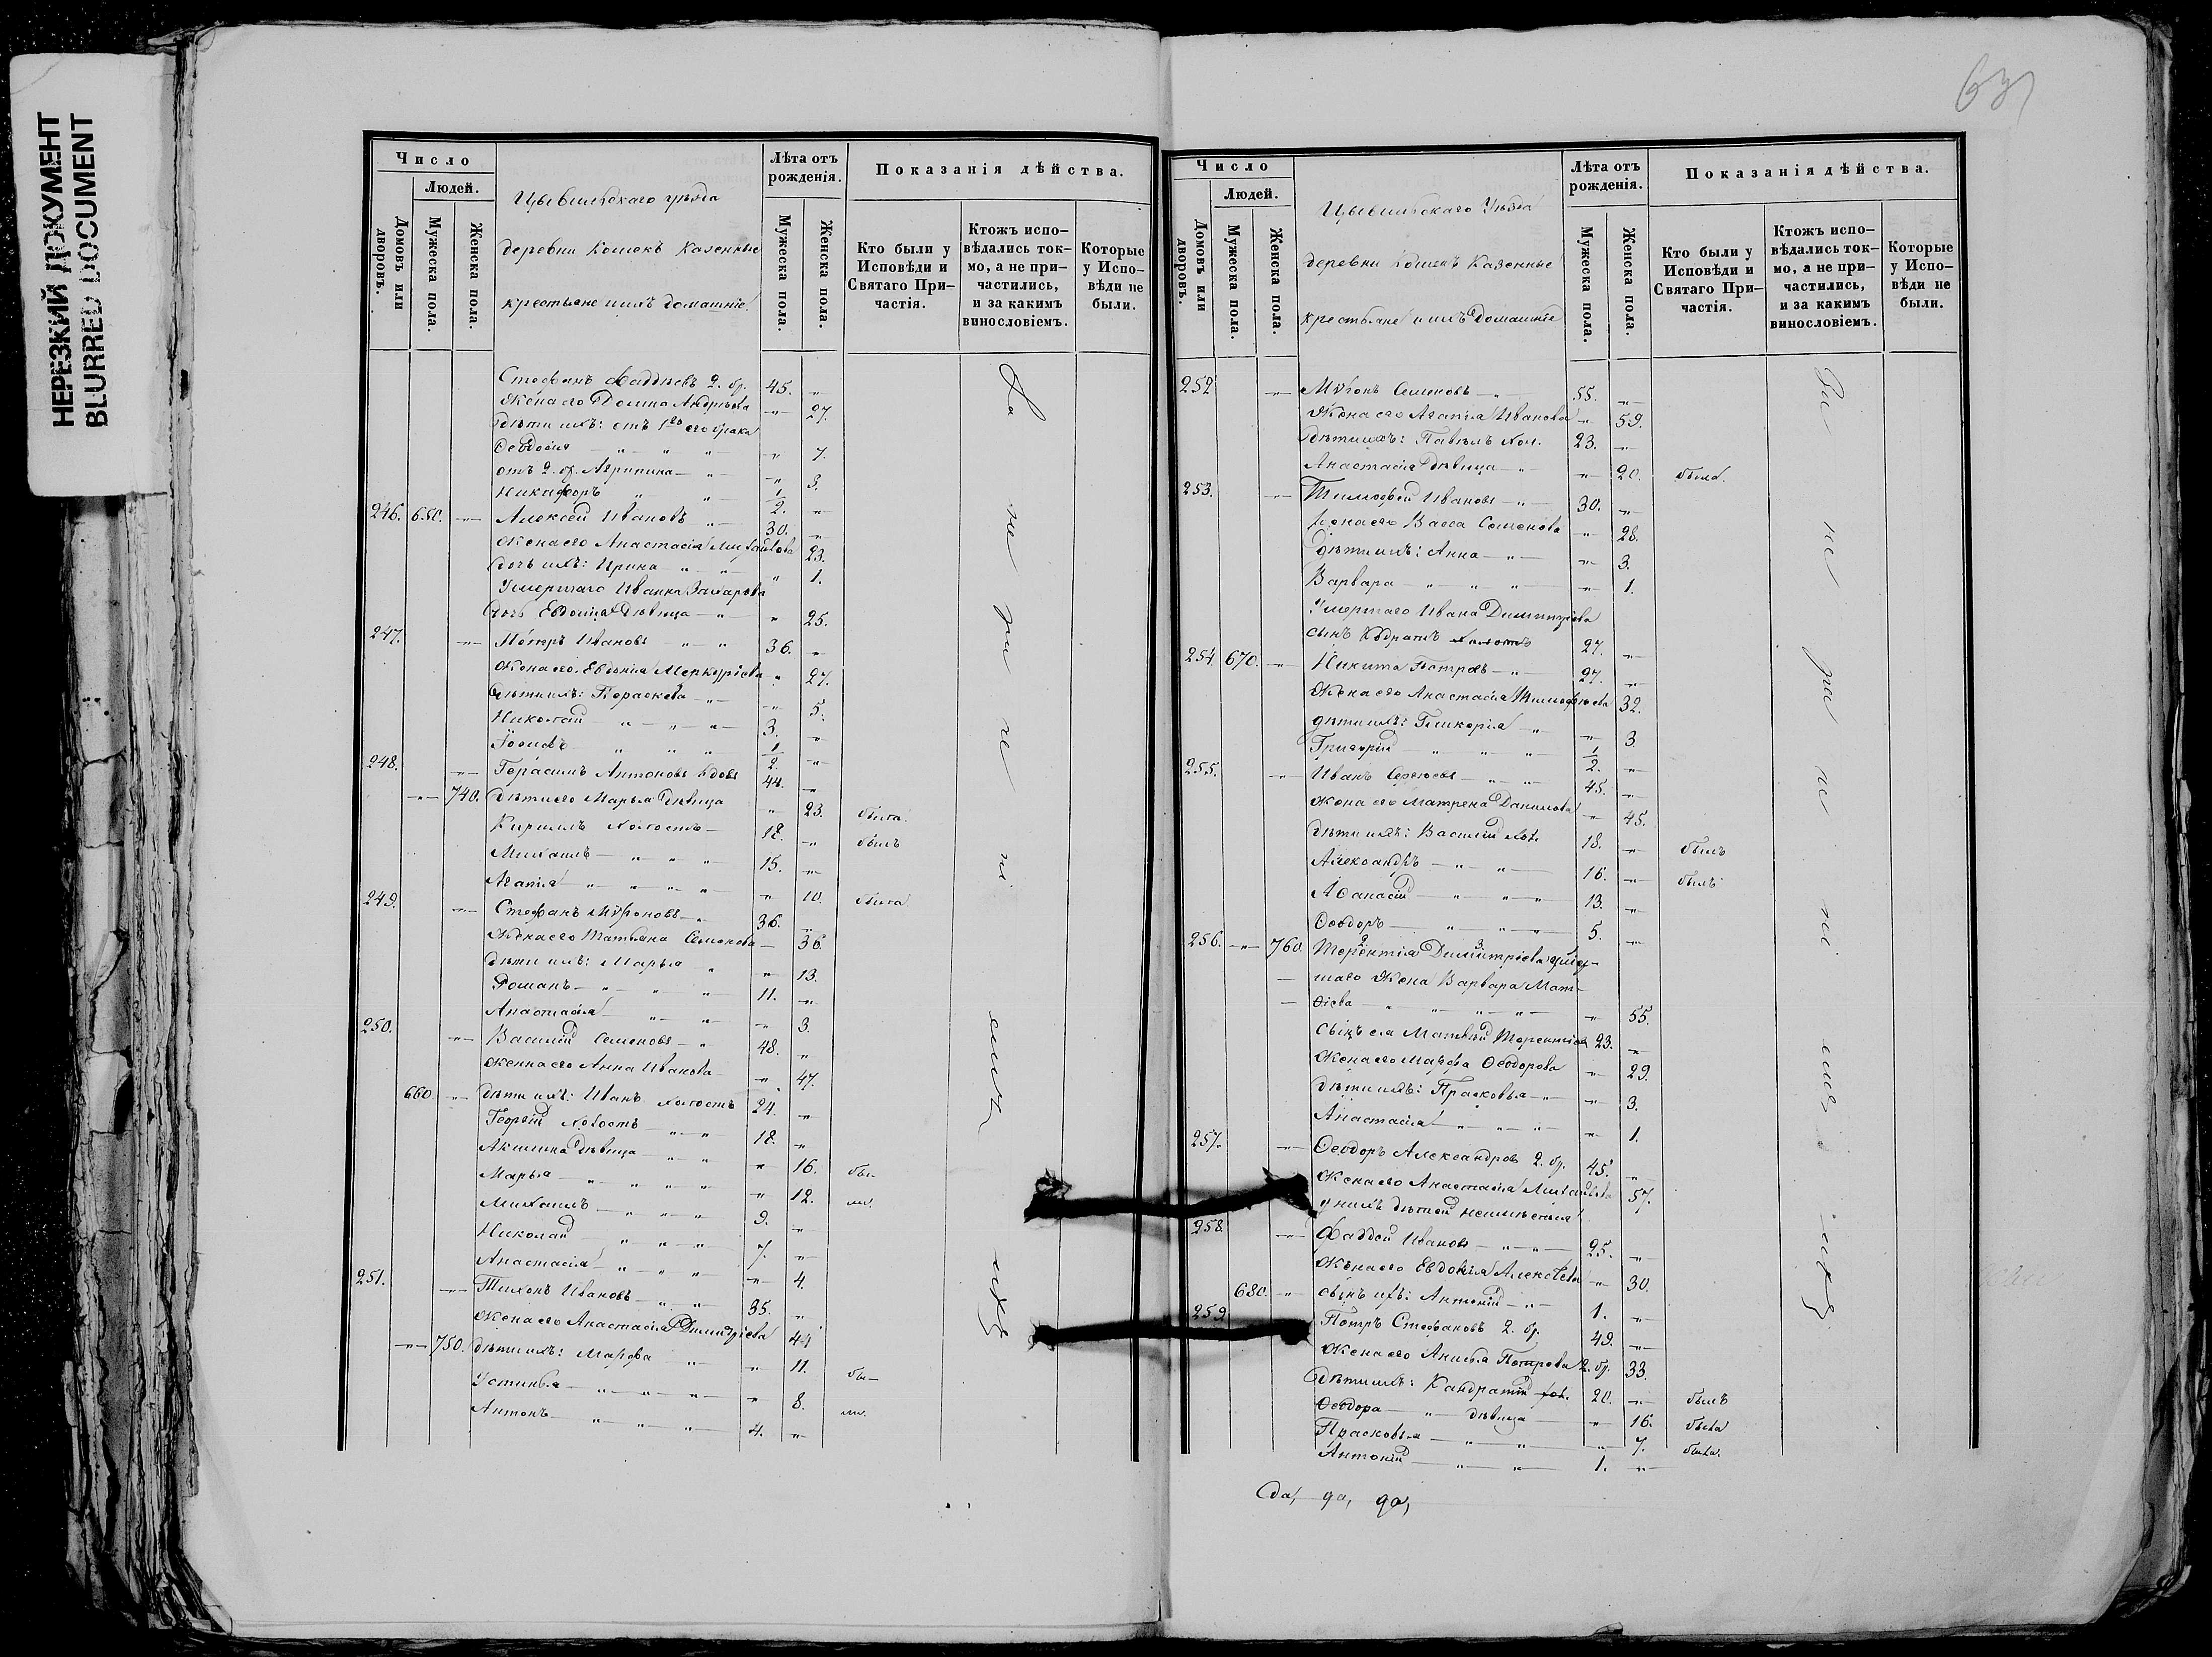 НЕРЕЗКИЙ ДОКУМЕНТ
BLURRED DOCUMENT
Число
Людей.
Домовъ или дворовъ.
Мужеска пола.
Женска пола.
Цывильскаго уѣзда
деревни Кошекъ Казенные
крестьяне и ихъ домашніе.
Лѣта отъ рожденія.
Мужеска пола.
Женска пола.
Показанія дѣйства.
Кто были у Исповѣди и Святаго Причастія.
Ктожъ исповѣдались токмо, а не причастились, и за какимъ винословіемъ.
Которые у Исповѣди не были.
Стефанъ Фаддѣевъ 2. бр. 45. „
Жена его Домна Андрѣева „ 27.
дѣти ихъ: отъ 1го его брака
Евдокія „ 7.
отъ 2. бр. Агрипина „ 3.
Никифоръ 1/2. „
246. 650. „ Алексѣй Ивановъ 30. „
Жена его Анастасія Михайлова 23.
дочь ихъ: Ирина „ 1.
Умершаго Ивана Захарова
дочь девица „ 25.
247. „ Петръ Ивановъ 36. „
Жена его Евдокія Меркуріева „ 27.
дѣти ихъ: Параскева „ 5.
Николай 3. „
Іосифъ 1/2. „
248. „ Герасимъ Антоновъ вдовъ 44. „
„ 740. дѣти его Марья дѣвица „ 23. была.
Кириллъ холостъ 18. „ былъ
Михаилъ 15. „
Агапія „ 10. была
249. „ Стефанъ Мѵроновъ 36. „
Жена его Татьяна Семенова 36.
дѣти ихъ: Марья „ 13.
Романъ 11. „
Анастасія „ 3.
250. „ Василій Семеновъ 48. „
Жена его Анна Иванова „ 47.
660. „ дѣти ихъ: Иванъ холостъ 24. „
Георгій холостъ 18. „
Акилина дѣвица „ 16. бы-
Марья „ 12. ли.
Михаилъ 9. „
Николай 7. „
Анастасія „ 4.
251. „ Тихонъ Ивановъ 35. „
Жена его Анастасія Димитріева 44
„ 750. дѣти ихъ: Марфа „ 11. бы-
Устинья „ 8. ли.
Антонъ 4. „
Число
Людей.
Домовъ или дворовъ.
Мужеска пола.
Женска пола.
Цывильскаго Уѣзда
деревни Кошекъ Казенные
крестьяне и ихъ домашніе
Лѣта отъ рожденія.
Мужеска пола.
Женска пола.
Показанія дѣйства.
Кто были у Исповѣди и Святаго Причастія.
Ктожъ исповѣдались токмо, а не причастились, и за какимъ винословіемъ.
Которые у Исповѣди не были.
252 „ Мѵронъ Семеновъ 55. „
Жена его Агапія Иванова „ 59.
дѣти ихъ: Павелъ хол. 23. „
Анастасія дѣвица „ 20. была.
253. „ Тимофей Ивановъ 30. „
Жена его Васса Семенова „ 28.
дѣти ихъ: Анна „ 3.
Варвара „ 1.
Умершаго Ивана Димитріева
сынъ Кодратъ холостъ 27. „
254. 670. „ Никита Петровъ 27. „
Жена его Анастасія Тимофеева 32.
дѣти ихъ: Гликерія „ 3.
Григорій 1/2. „
255. „ Иванъ Сергѣевъ 45. „
Жена его Матрена Данилова „ 45.
дѣти ихъ: Василій хол. 18. „ былъ
Александръ 16. „ былъ
Аѳанасій 13. „
Ѳеодоръ 5. „
256. „ 760 Терентія Димитріева умер-
шаго Жена Варвара Мат-
ѳіева „ 55.
сынъ ея Матвѣй Терентіевъ 23. „
Жена его Марфа Ѳеодорова „ 29.
дѣти ихъ: Прасковья „ 3.
Анастасія „ 1.
257. „ Ѳеодоръ Александровъ 2. бр. 45. „
Жена его Анастасія Михайлова 57.
у нихъ дѣтей неимѣется
258. „ Фаддей Ивановъ 25. „
Жена его Евдокія Алексѣева „ 30.
680. „ сынъ ихъ: Антоній 1. „
259 Петръ Стефановъ 2. бр. 49. „
Жена его Анисья Петрова 2. бр. 33.
дѣти ихъ: Кандратій хол. 20. „ былъ
Ѳеодора дѣвица „ 16. была
Прасковья „ 7. была.
Антоній 1. „
да, да, да,